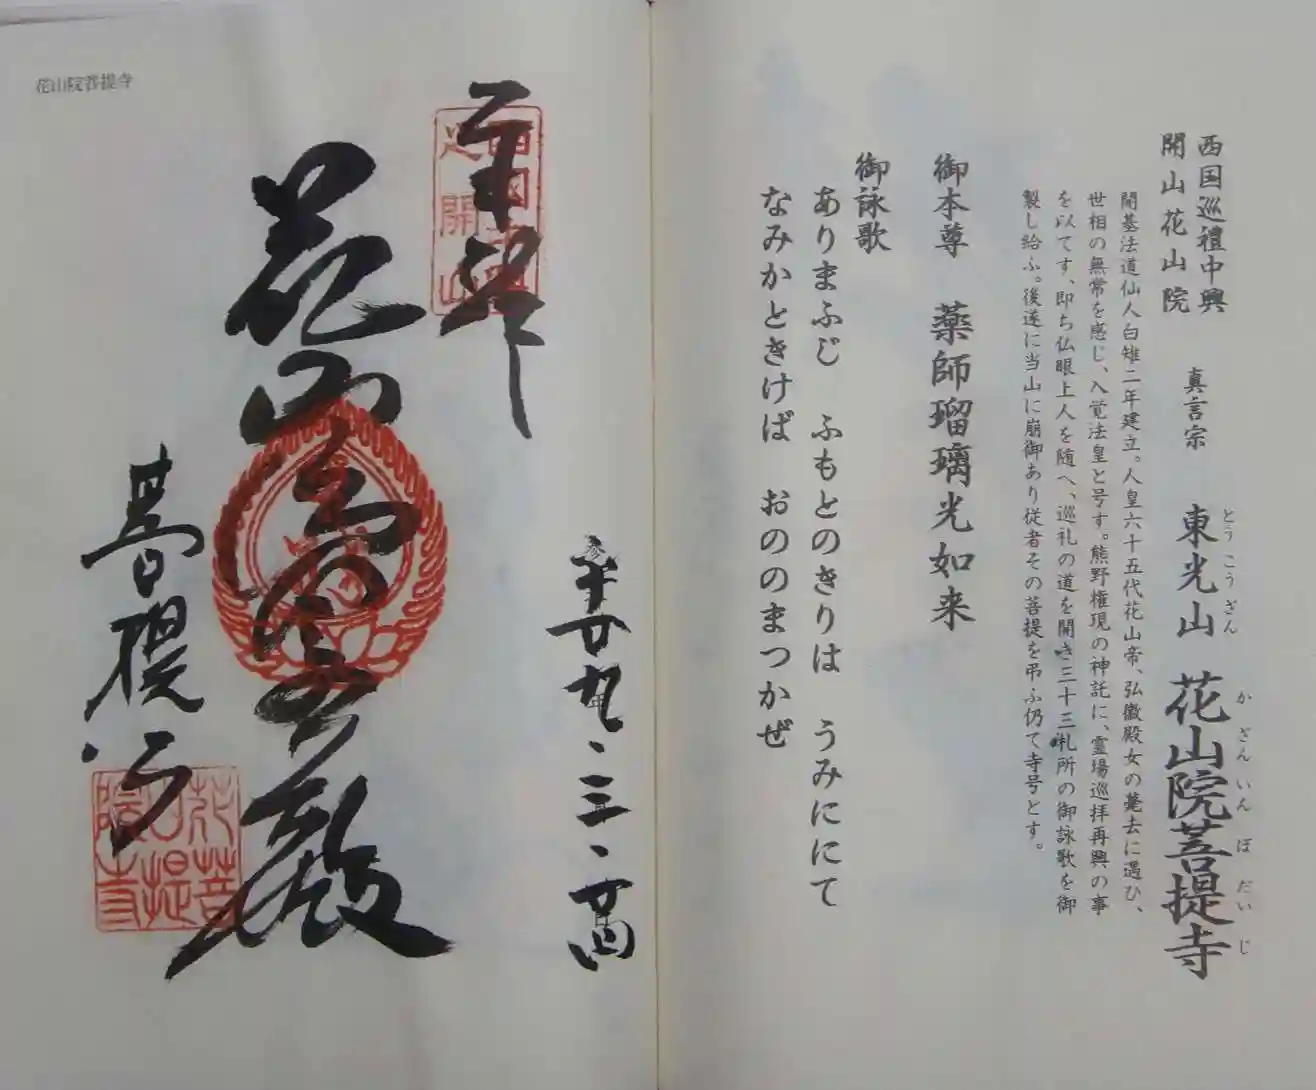 西国巡禮中興
開山花山院
真言宗
東光山
とうこうざん
花山院菩提寺
かざんいんぼだいじ
開基法道仙人白雉二年建立。人皇六十五代花山帝、弘徽殿女の薨去に遇ひ、
世相の無常を感じ、入覚法皇と号す。熊野権現の神託に、霊場巡拝再興の事
を以てす、即ち仏眼上人を随へ、巡礼の道を開き三十三札所の御詠歌を御
製し給ふ。後遂に当山に崩御あり従者その菩提を弔ふ仍て寺号とす。
御本尊 薬師瑠璃光如来
御詠歌
ありまふじ ふもとのきりは うみににて
なみかときけば おののまつかぜ
花山院菩提寺
奉拝
花山
殿
菩提寺
花山院
菩提寺
廿九・三・廿四